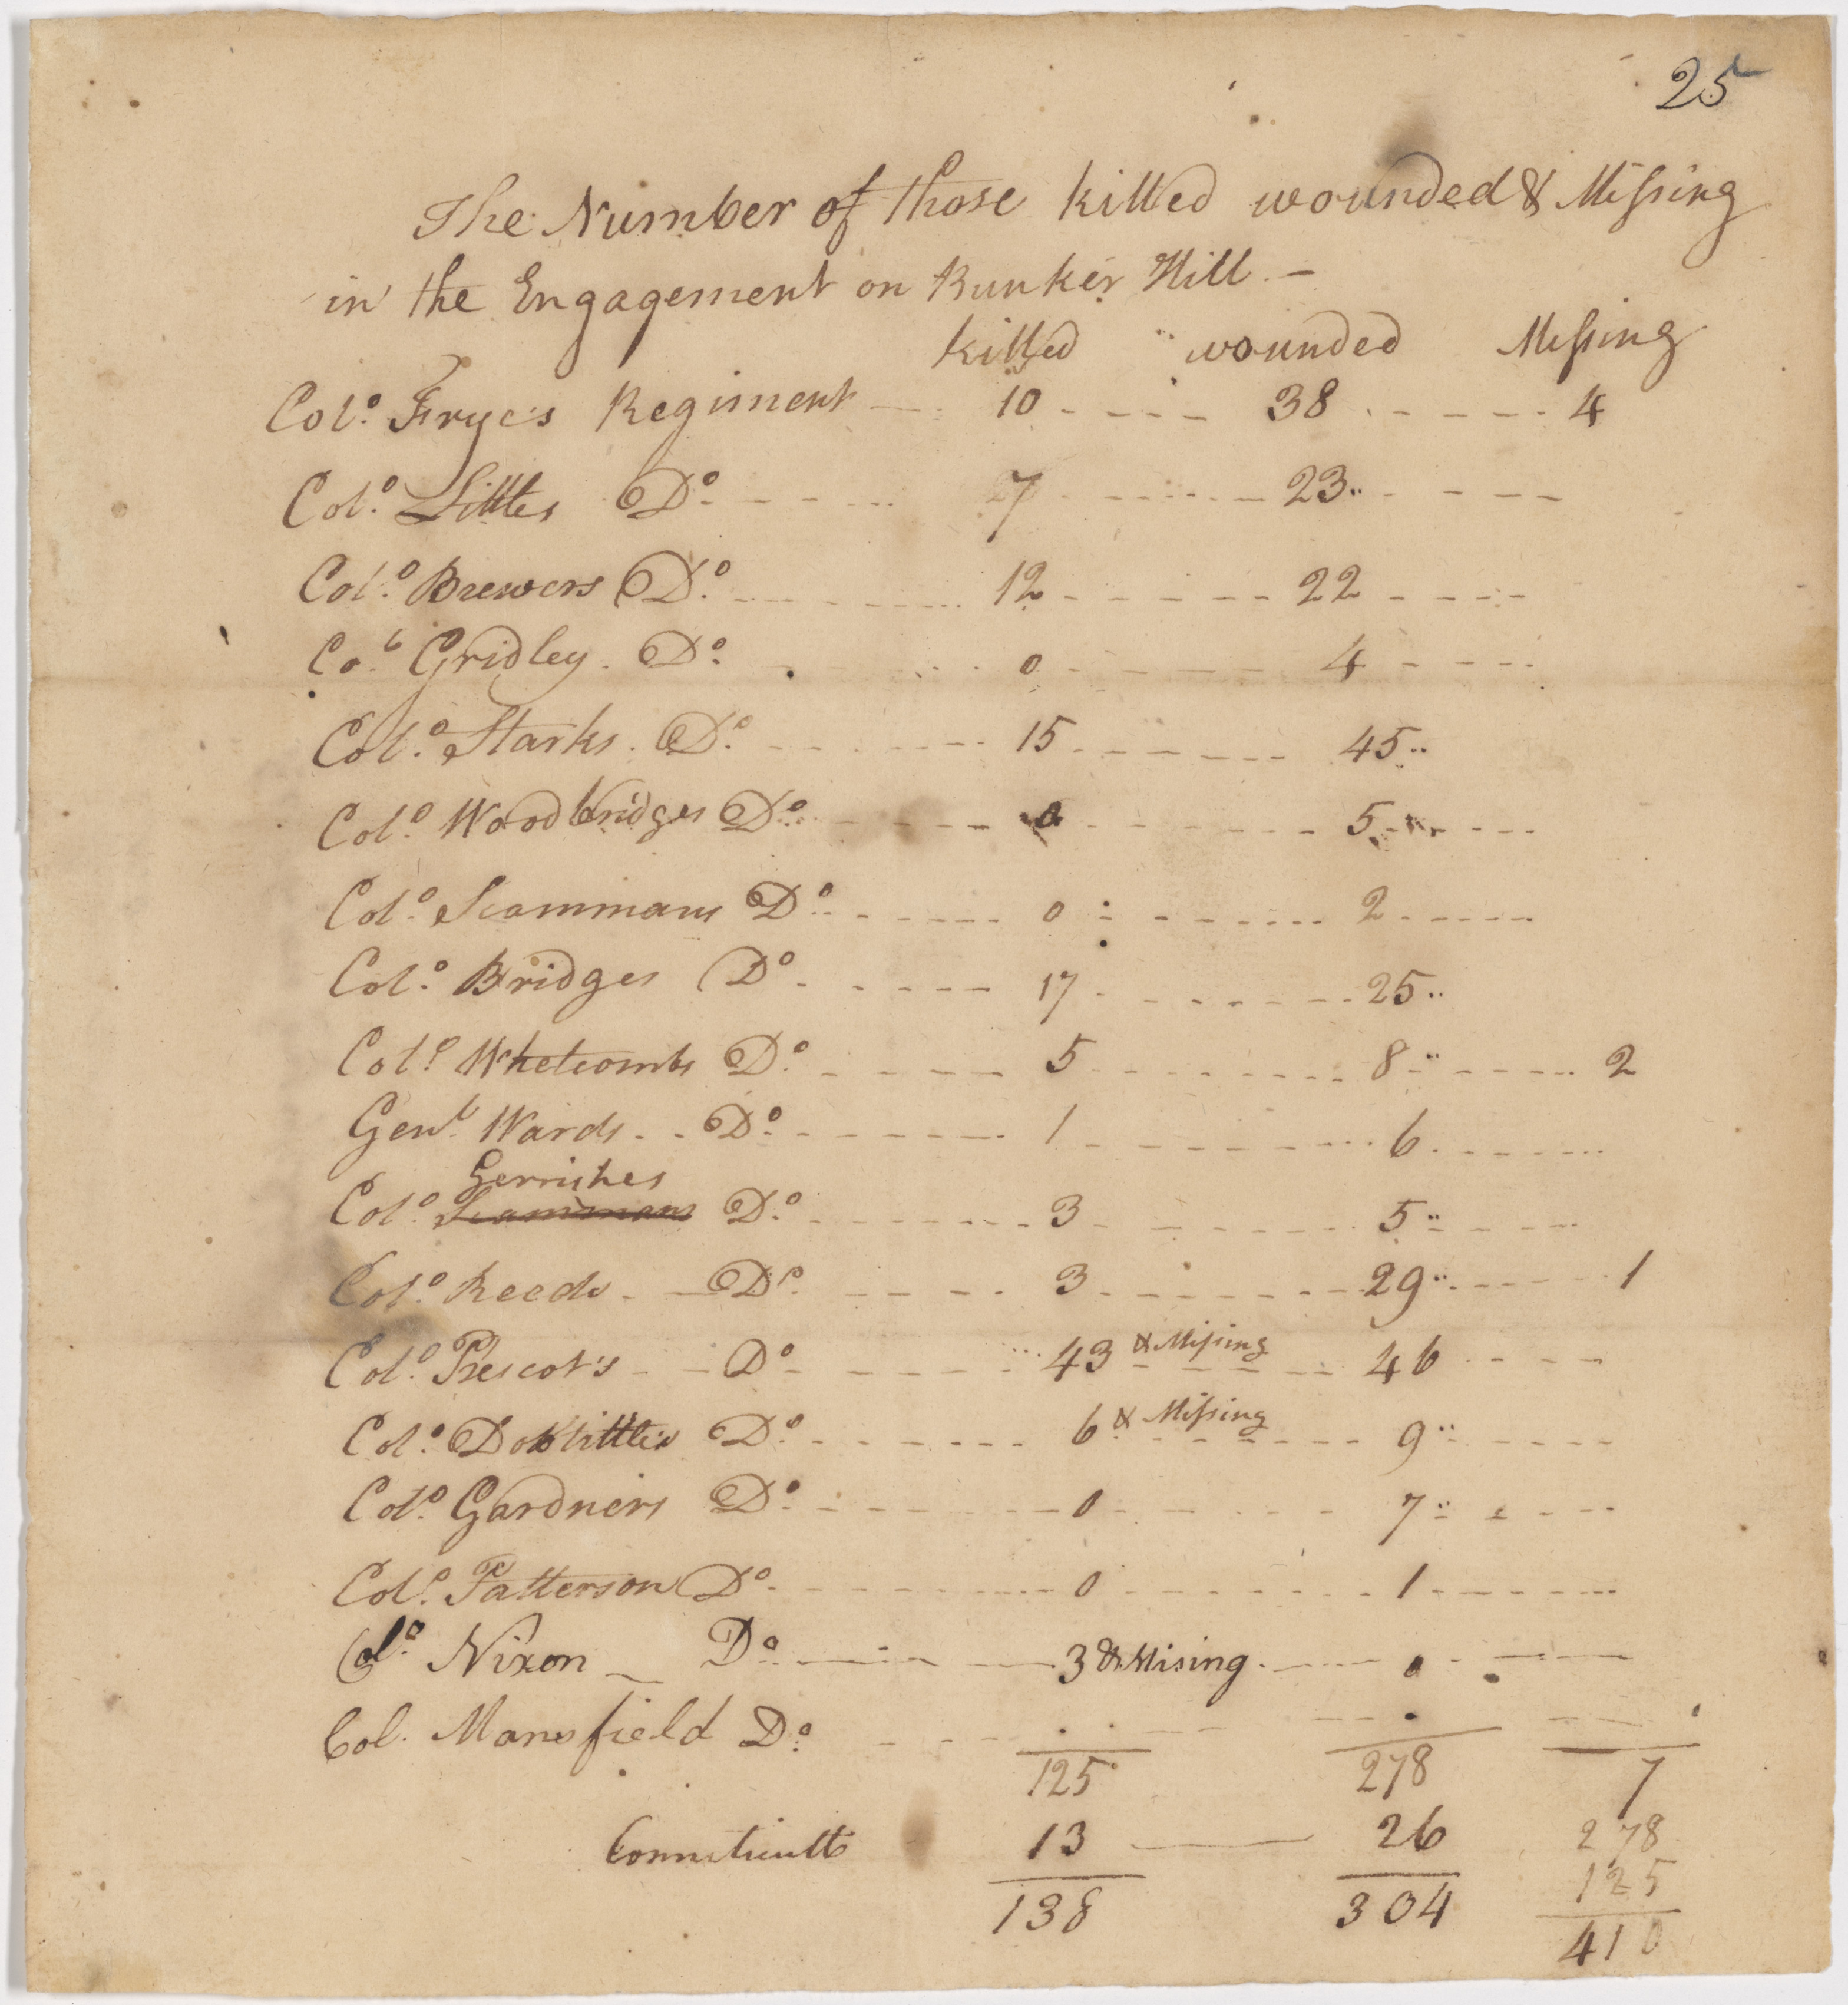 25
The Number of those killed wounded & Missing
in the Engagement on Bunker Hill —
killed wounded Missing
Colo. Frye's Regiment 10 38 4
Colo. Littles Do. 7 23
Colo. Brewers Do. 12 22
Col. Gridley. Do. 0 4
Colo. Starks. Do. 15 45
Colo. Woodbridges Do. 0 5
Colo. Scammans Do. 0 2
Colo. Bridges Do. 17 25
Colo. Whetcombs Do. 5 8 2
Genl. Wards Do. 1 6
Gerrishes
Colo. Scammans Do. 3 5
Colo. Reeds Do. 3 29 1
Colo. Prescots Do. 43 & Missing 46
Colo. Doolittles Do. 6 & Missing 9
Colo. Gardners Do. 0 7
Colo. Patterson Do. 0 1
Colo. Nixon Do. 3 & Mising
Col. Mansfield Do.
125 278 7
Connecticutt 13 26 278
125
138 304 410